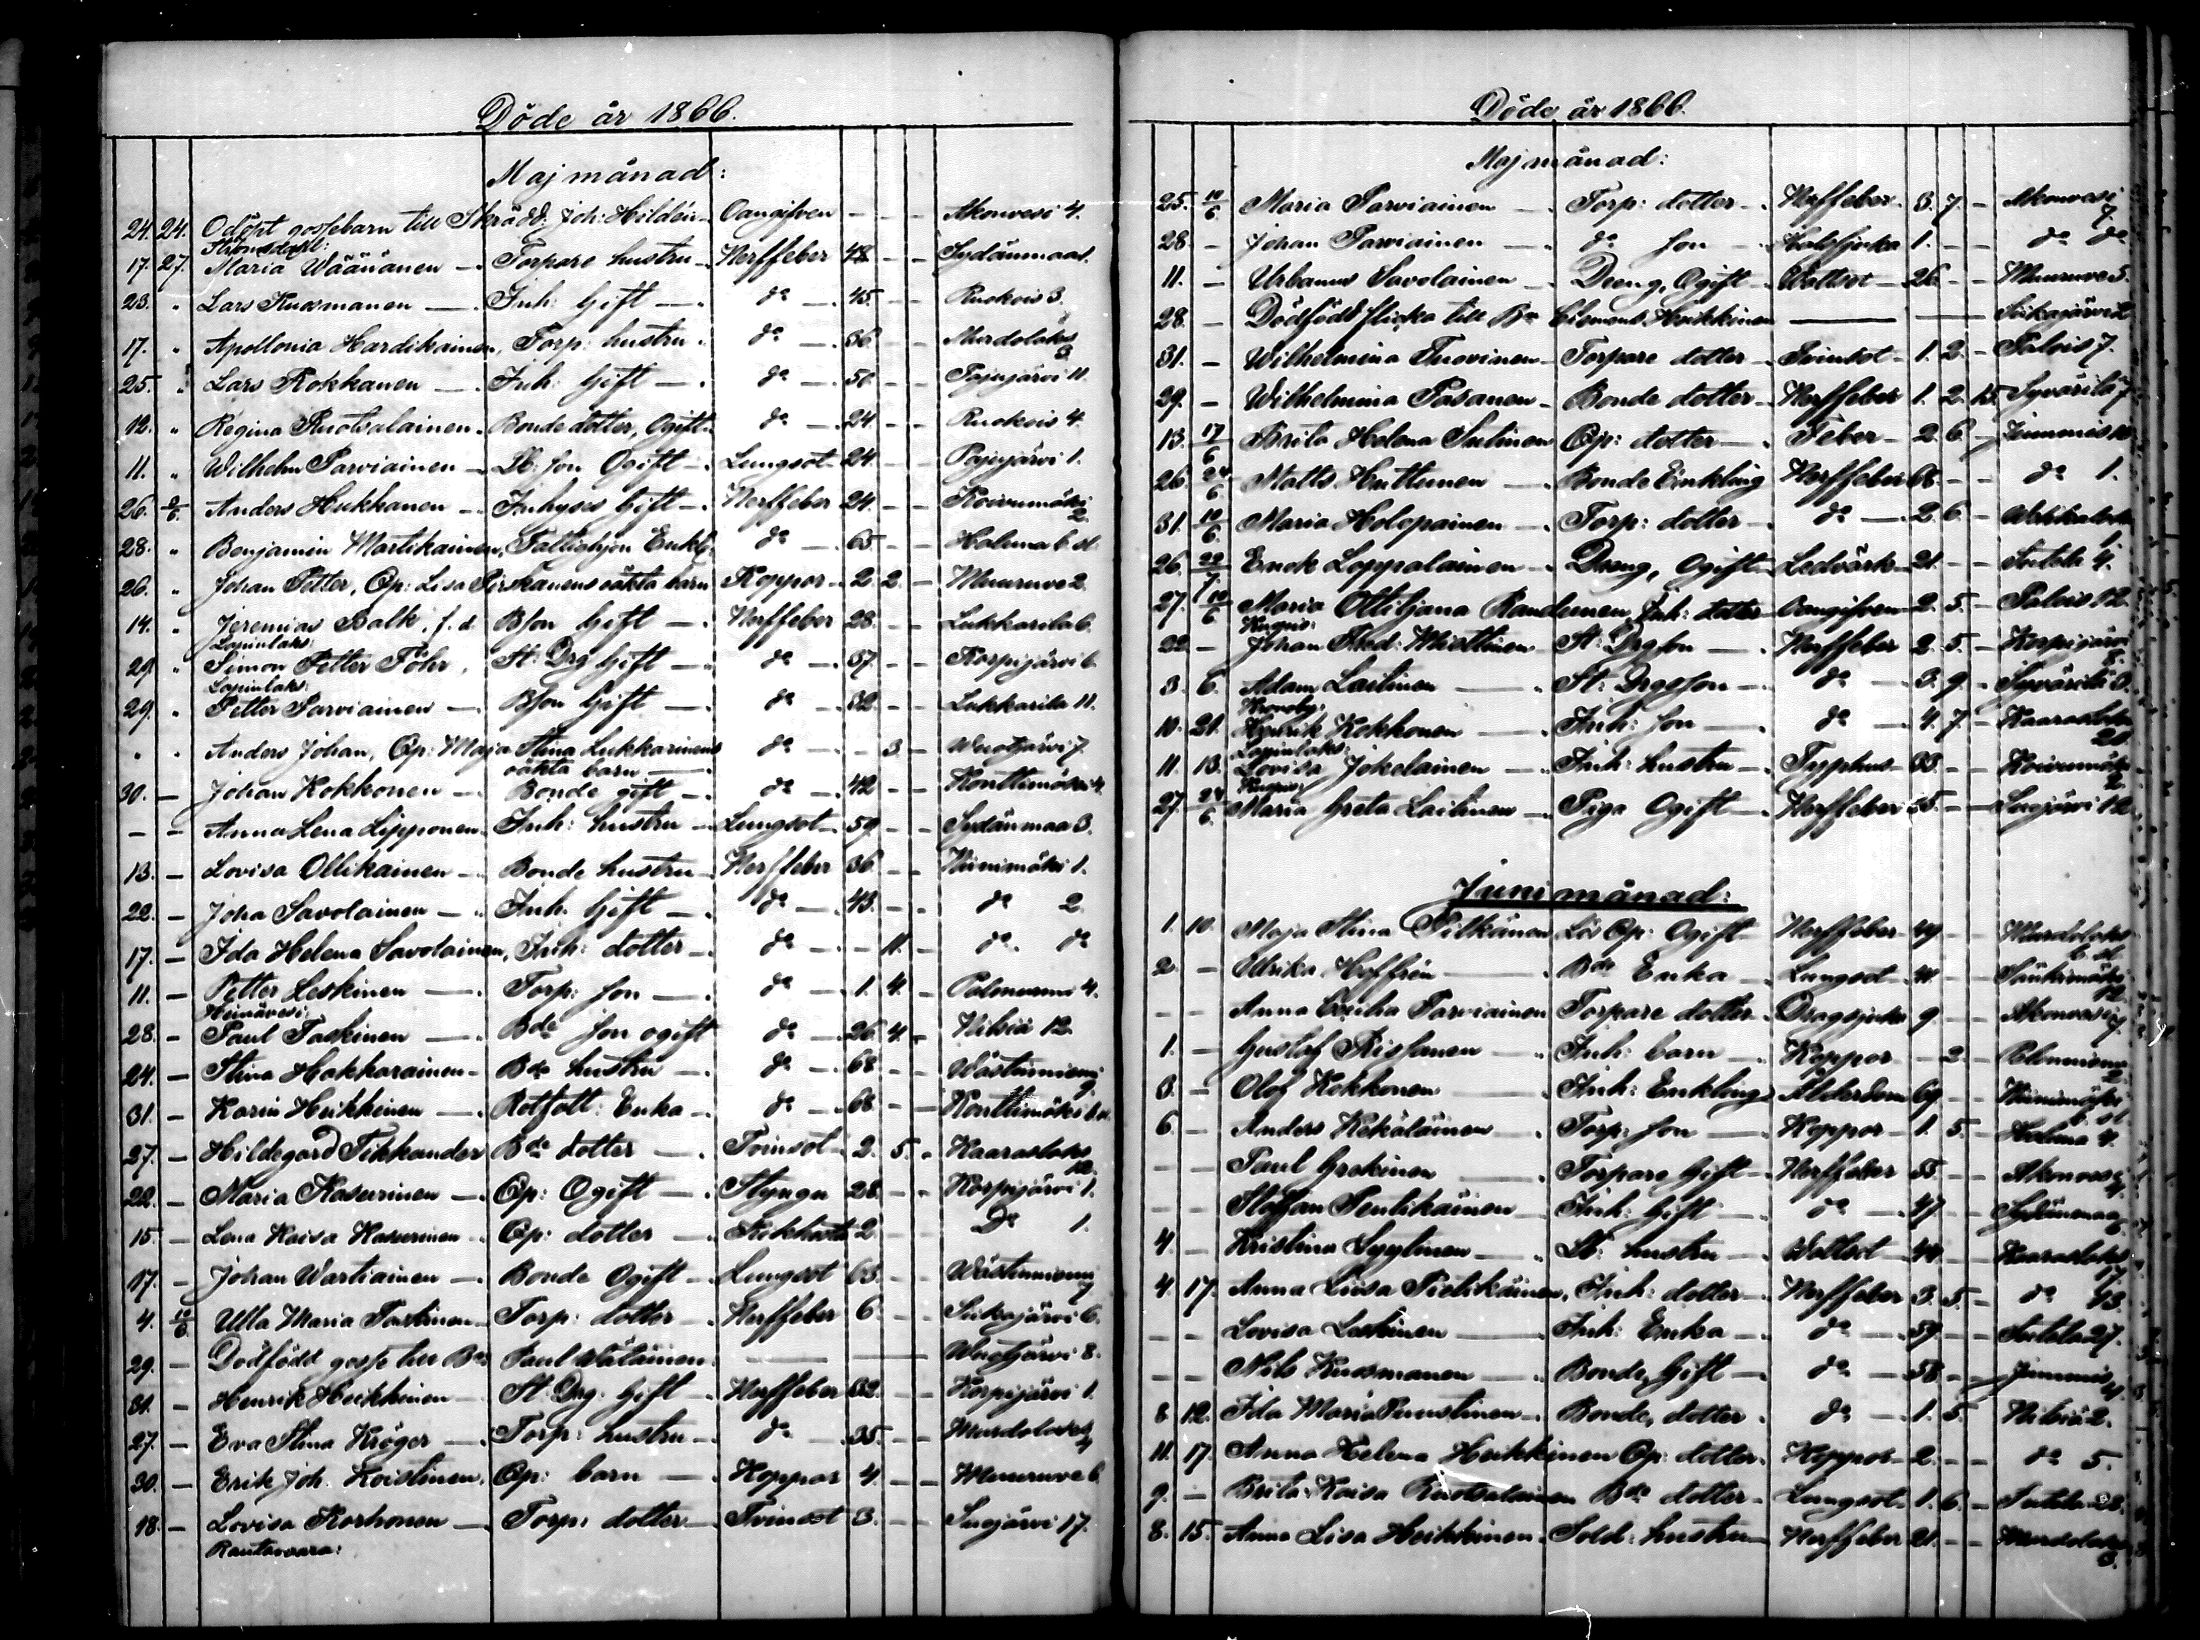 Döde år 1866.
Maj månad:
24. 24. Odöpt gossebarn till Skrädd: Joh: Hildén Oangifven — — — Akonvesi 4.
17. 27. Maria Wäänänen — Torpare hustru — Nerffeber 48 — — Sydänmaa 1.
23. " Lars Kuosmanen — Inh: Gift — do — 45 — — Ruokois 3.
17. " Apollonia Hardikainen, Torp: hustru — do — 36 — — Murdolaks 3.
25. " Lars Rokkanen — Inh: Gift — do — 50 — — Pajujärvi 11.
12. " Regina Ruotsalainen — Bonde dotter, Ogift — do — 24 — — Ruokois 4.
11. " Wilhelm Parviainen — Lb: son Ogift — Lungsot 24. — — Pajujärvi 1.
26. 2/6. Anders Hukkanen — Inhyses Gift — Nerffeber 24. — — Koivumäki 2.
28. " Benjamin Martikainen, Fattighjon Enkl: do — 65 — — Haluna 6 st.
26. " Johan Petter, Op: Lisa Pirskanens oäkta barn Koppor — 2. 2. — Muuruve 2.
14. " Jeremias Balk, f. d. Bson Gift — Nerffeber 28. — — Lukkarila 6.
Lapinlaks:
29. " Simon Petter Föhr, St: Drg Gift — do — 37. — — Korpijärvi 6.
Lapinlaks:
29. " Petter Parviainen — Bson Gift — do — 32. — — Lukkarila 11.
" " Anders Johan, Op: Maja Stina Lukkarinens do — — 3 — Wuotjärvi 7.
oäkta barn —
30. — Johan Kokkonen — Bonde gift — do — 42 — — Konttimäki 4.
— — Anna Lena Lipponen — Inh: hustru — Lungsot 59 — — Sydänmaa 3.
13. — Lovisa Ollikainen — Bonde hustru — Nerffeber 36 — — Niinimäki 1.
22. — Joha Savolainen — Inh. Gift — do — 43. — — do 2
17. — Ida Helena Savolainen, Inh: dotter — do — — 11. — do. do
11. — Petter Leskinen — Torp: son — do — 1. 4. — Palonurmi 4.
Heinävesi:
28. — Paul Taskinen — Bde son ogift do — 26 4. — Nilsiä 12.
24. — Stina Hakkarainen — Bde hustru — do — 68 — — Västinniemi 9.
31. — Karin Heikkinen — Rotfatt: Enka — do — 68 — — Konttimäki 6 st.
27. — Hildegard Tikkander Bde dotter — Tvinsot 2. 5. — Kaaraslaks 12.
22. — Maria Kasurinen — Op: Ogift — Styngn 28. — — Korpijärvi 1.
15. — Lena Kaisa Kasurinen — Op: dotter — Kikhosta 2 — — Do 1.
17. — Johan Wartiainen — Bonde Ogift — Lungsot 63. — — Västinniemi 7
4. 10/6 Ulla Maria — Torp: dotter — Nerffeber 6. — — Siikajärvi 6.
29. — Dödfödd gosse till Bde Paul Wätäinen — — Wuotjärvi 8.
31. — Henrik Heikkinen — St. Drg: Gift — Nerffeber 32. — — Korpijärvi 1.
27. — Eva Stina Kröger — Torp: hustru — do — 35. — — Murdolaks 4
30. — Erik Joh. Koistinen, Op: barn — Koppor 4. — — Muuruve 6.
18. — Lovisa Korhonen — Torp: dotter — Tvinsot 3. — — Suojärvi 17.
Rautavaara:
Döde år 1866.
Maj månad:
25. 10/6 Maria Parviainen — Torp: dotter — Nerffeber 3. 7. — Akonvesi 7.
28. — Johan Parviainen — do son — Halssjuka 1. — — do do
11. — Urbanus Savolainen — Dreng, Ogift — Vattsot — 26 — — Muuruve 5.
28. — Dödfödt flicka till Bde Clemens Heikkinen — — Siikajärvi 2.
31. — Wilhelmina Tuovinen — Torpare dotter — Tvinsot 1. 2. — Palois 7.
29. — Wilhelmina Pasanen — Bonde dotter — Nerffeber 1. 2. 15. Syvärilä 7
13. 17/6 Brita Helena Sutinen Op: dotter — Feber — 2. 6. — Juminis 10.
26. 24/6 Matts Huttunen — Bonde Enkling Nerffeber 68. — — do 1.
31. 10/6 Maria Holopainen — Torp: dotter — do — 2. 6. —
26. 22/7. Enok Loppalainen — Dreng, Ogift — Ledvärk — 21. — — Sutela 4.
27. 10/6 Maria Ottiljana Randeinen Inh: dotter Oangifven 2. 5. — Palois 12.
Kuopio:
22. — Johan Fred: Miettinen — St: Drgson — Nerffeber 2. 5. — Korpijärvi 8.
3. 6. Adam Laitinen — St: Drgson — do — 3. 9. — Syvärilä 3.
10. 21. Henrik Kokkonen — Inh: son — do — 4. 7. — Kaaraslaks 20.
Lapinlaks:
11. 13. Lovisa Jokelainen — Inh: hustru — Typhus — 33. — — Koivumäki 2.
Kuopio:
27. 24/6. Maria Greta Laitinen — Piga Ogift — Nerffeber 25. — — Suojärvi 12.
Juni månad:
1. 10. Maja Stina Pitkänen Lös Op: Ogift Nerffeber 49 — — Murdolaks 6 st
2. — Ulrika Hoffrén — Bde Enka — Lungsot 41. — — Sänkimäki 12.
— — Anna Cecilia Parviainen Torpare dotter Dragsjuka 9. — — Akonvesi 7.
1. — Gustaf Rissanen — Inh: barn — Koppor — 2. — Palonurmi 2.
3. — Olof Kokkonen — Inh: Enkling Ålderdom 69 — — Niinimäki 6 st
6. — Anders Kekäläinen — Torp: son — Koppor — 1. 5. — Haluna 4.
— — Paul — Torpare Gift — Nerffeber 55. — — Akonvesi 4
— — Staffan Pentikäinen — Inh: Gift — do — 47. — — Sydänmaa 6.
4. — Kristina Lyytinen — Lb: hustru — Vattsot 44. — — Kaaraslaks 17.
4. 17. Anna Liisa Pielikäinen, Inh: dotter — Nerffeber 3. 5. — do 13.
— — Lovisa Leskinen — Inh: Enka — do — 59. — — Sutela 27.
— — Nils Kuosmanen — Bonde, Gift — do — 58. — — Juminis 4
8 12. Ida Maria Puustinen — Bonde, dotter — do — 1. 5. Nilsiä 2.
11. 17. Anna Helena Heikkinen Op: dotter — Koppor — 2. — — do 5.
9. — Brita Kaisa Ruotsalainen Bde dotter — Lungsot 1. 6. — Sutela 28.
8. 15. Anna Lisa Heikkinen — Sold: hustru — Nerffeber 21. — — Murdolaks 3.